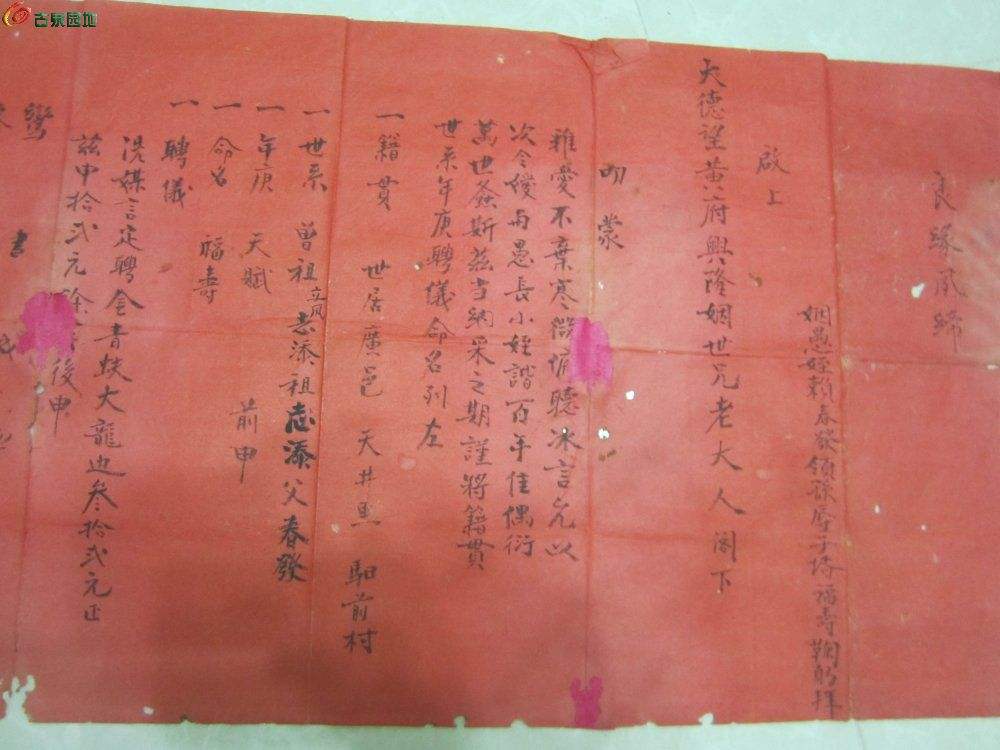 古泉园地
良緣夙締
姻愚姪賴春發領孫辱子壻福壽鞠躬拜
啟上
大德望黃府興隆姻世兄老大人閣下
叨蒙
雅愛不棄寒微俯聽冰言允以
次令嬡與愚長小姪諧百年佳偶衍
萬世螽斯茲當納采之期謹將籍貫
世系年庚聘儀命名列左
一籍貫 世居廣邑 天井 前村
一世系 曾祖立凤志添祖志添父春發
一年庚 天賦 前申
一命名 福壽
一聘儀
憑媒言定聘金青蚨大龍 叁拾弍元正
茲申拾弍元餘 後申
鸞書